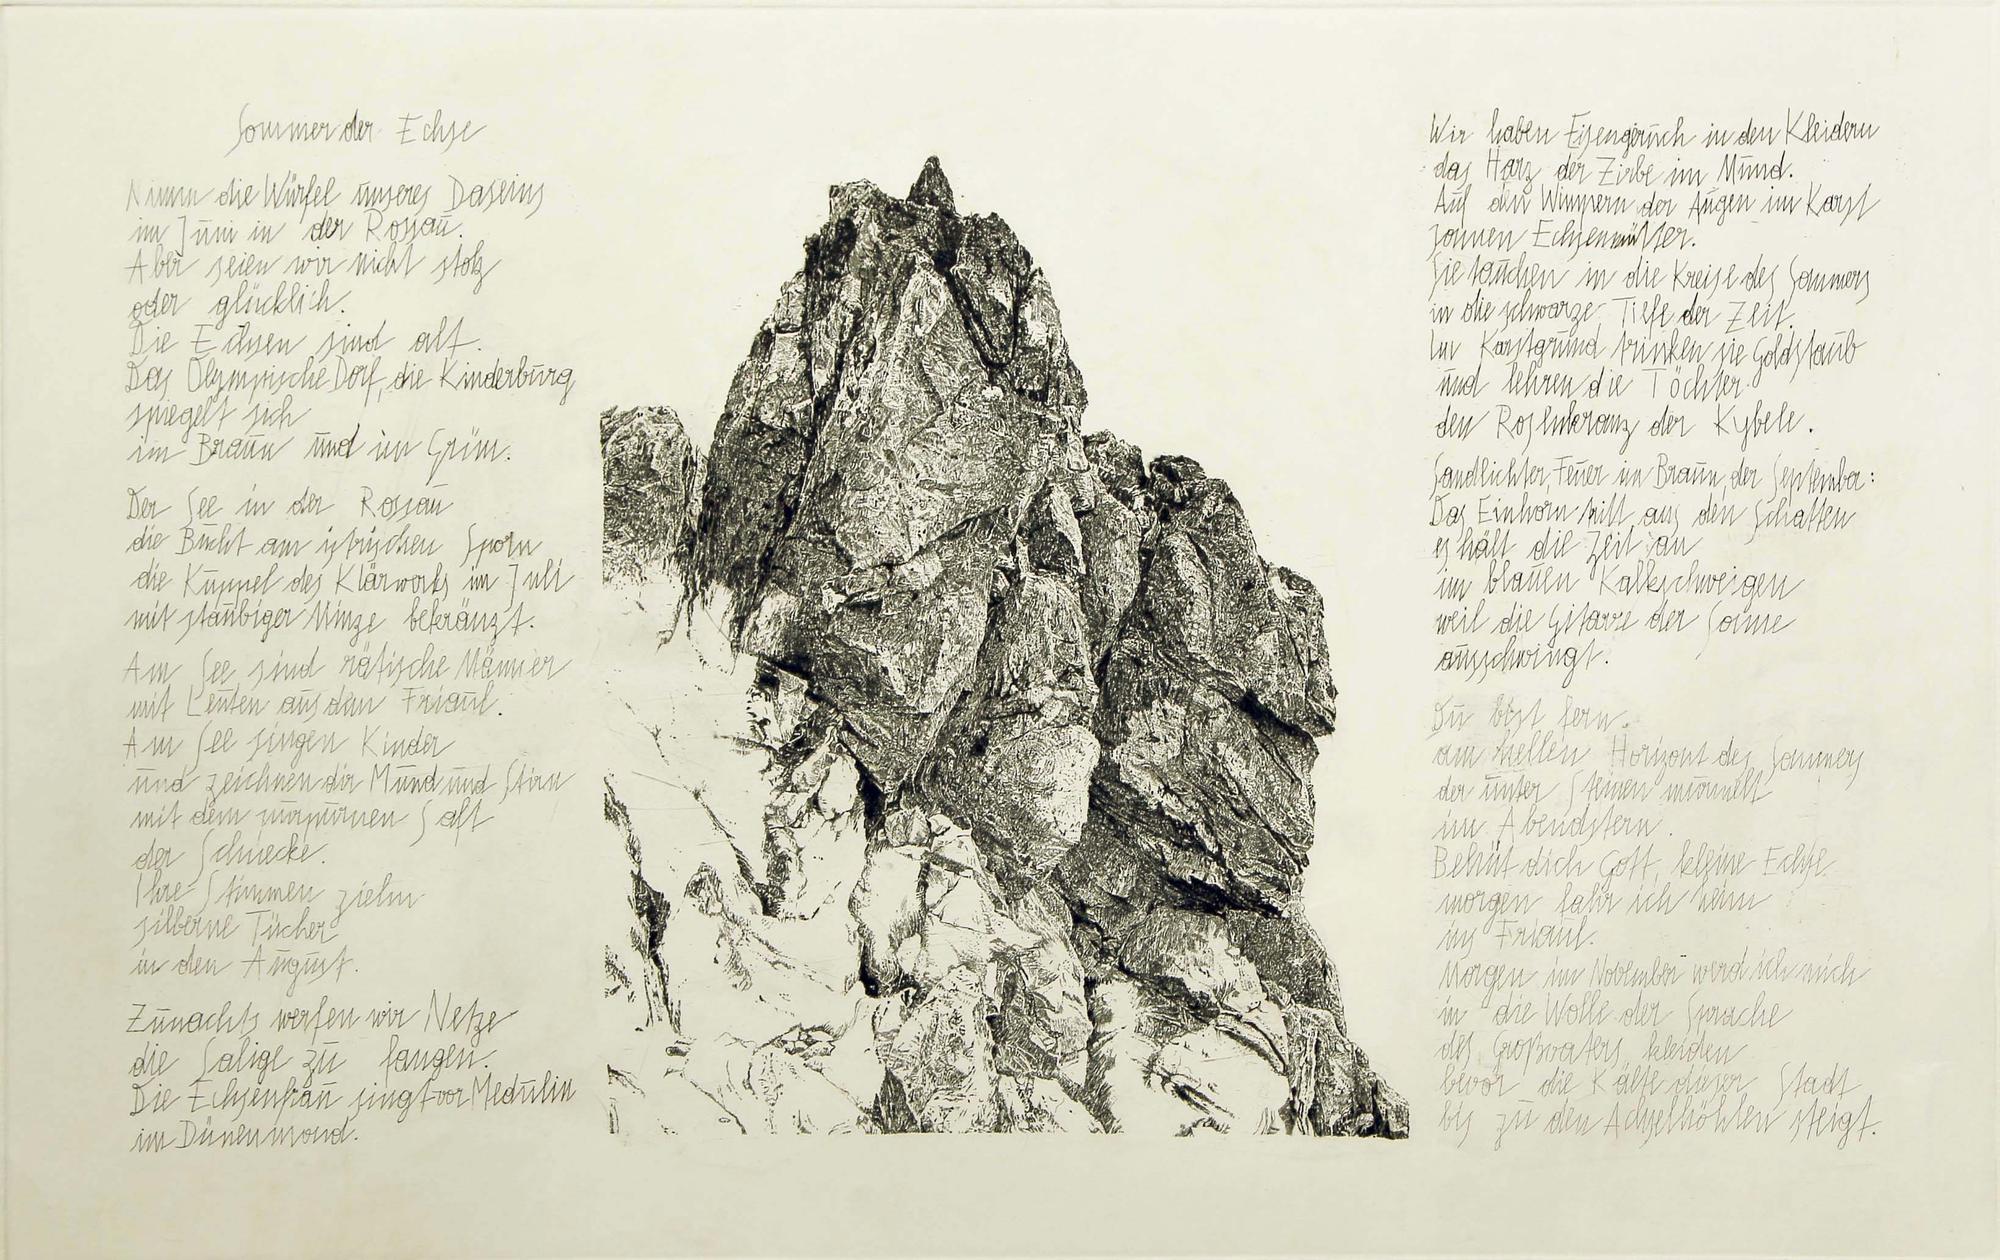 Sommer der Echse
Nimm die Würfel unseres Daseins
im Juni in der Rossau.
Aber seien wir nicht stolz
oder glücklich.
Die Echsen sind alt.
Das Olympische Dorf, die Kinderburg
spiegelt sich
im Braun und im Grün.
Der See in der Rossau
die Bucht am istrischen Sporn
die Kuppel des Klärwerks im Juli
mit staubiger Minze bekränzt.
Am See sind rätische Männer
mit Leuten aus dem Friaul.
Am See singen Kinder
und zeichnen dir Mund und Stirn
mit dem purpurnen Saft
der Schnecke.
Ihre Stimmen ziehn
silberne Tücher
in den August.
Zunachts werfen wir Netze
die Salige zu fangen.
Die Echsenfrau singt vor Medulin
im Dünenmond.
Wir haben Eisengeruch in den Kleidern
das Harz der Zirbe im Mund.
Auf den Wimpern der Augen im Karst
sonnen Echsenmütter.
Sie tauchen in die Kreise des Sommers
in die schwarze Tiefe der Zeit.
Im Karstgrund trinken sie Goldstaub
und lehren die Töchter
den Rosenkranz der Kybele.
Sandlichter, Feuer im Braun, der September:
Das Einhorn tritt aus den Schatten
es hält die Zeit an
im blauen Kalkschweigen
weil die Gitarre der Sonne
ausschwingt.
Du bist fern.
am hellen Horizont des Sommers
der unter Steinen murmelt
im Abendstern.
Behüt dich Gott, kleine Echse
morgen fahr ich heim
ins Friaul.
Morgen im November werd ich mich
in die Wolle der Sprache
des Großvaters kleiden
bevor die Kälte dieser Stadt
bis zu den Achselhöhlen steigt.